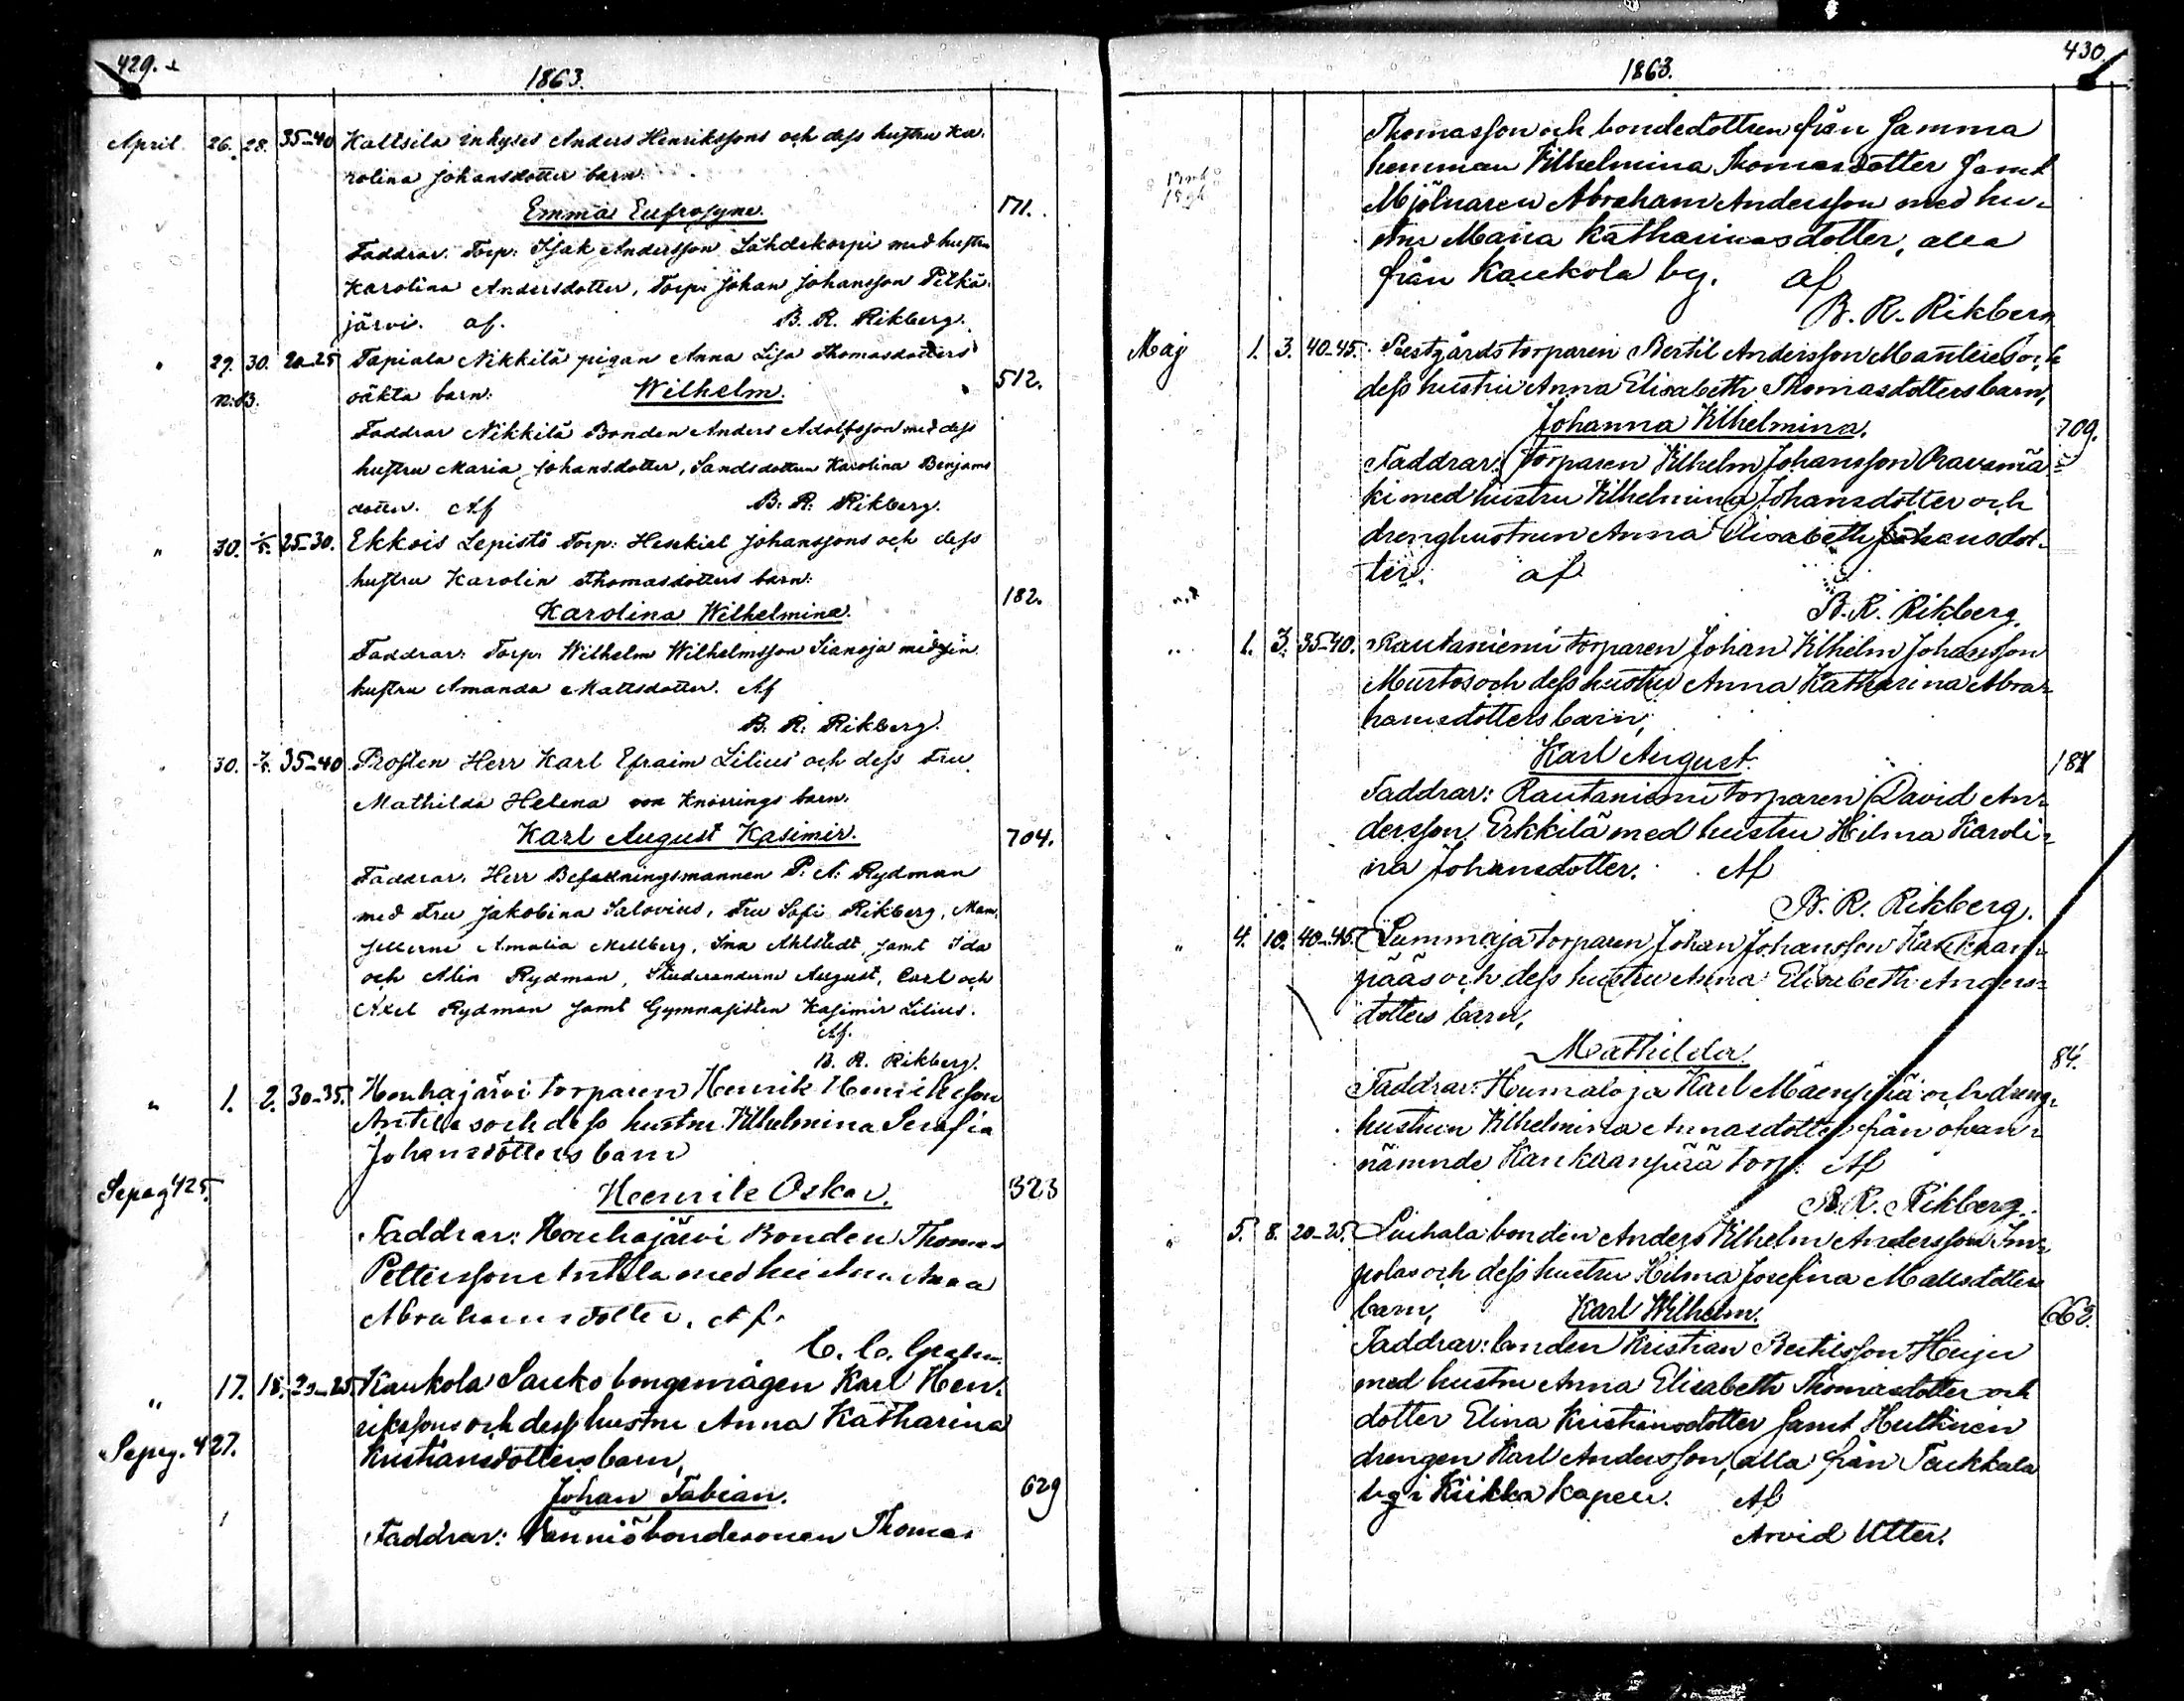 429.
1863.
April 26. 28. 35-40 Kaltsila inhyses Anders Henrikssons och dess hustru Ka-
rolina Johansdotter barn:
Emma Eufrosyne. 171.
Faddrar: Torp: Isak Andersson Lähdekorpi med hustru
Karolina Andersdotter, Torp: Johan Johansson Pitkä-
järvi. af. B. R. Rikberg.
" 29. 30. 20-25 Tapiala Nikkilä pigan Anna Lisa Thomasdotters
n:o3. oäkta barn: Wilhelm. 512.
Faddrar Nikkilä Bonden Anders Adolfsson med dess
hustru Maria Johansdotter, Landsdottern Karolina Benjams
dotter. Af B. R. Rikberg.
" 30. 2/5. 25-30. Ekkois Lepistö Torp: Heskiel Johanssons och dess
hustru Karolin Thomasdotters barn:
Karolina Wilhelmina. 182.
Faddrar: Torp: Wilhelm Wilhelmsson Sianoja med sin
hustru Amanda Mattsdotter. Af
B. R. Rikberg.
30. 35-40 Prosten Herr Karl Efraim Lilius och dess Fru
Mathilda Helena von Knorrings barn:
Karl August Kasimir. 704.
Faddrar. Herr Befallningsmannen P. A. Rydman
med Fru Jakobina Salovius, Fru Sofi Rikberg, Mam-
sellerne Amalia Mellberg, Ina Ahlstedt, samt Ida
och Alin Rydman, Studeranderne August, Carl och
Axel Rydman samt Gymnasisten Kasimir Lilius.
Af.
B. R. Rikberg.
" 1. 2. 30-35. Houhajärvi torparen Henrik Henriksson
Anttilas och dess hustru Vilhelmina Serafia
Johansdotters barn
Sepag 425. Henrik Oskar. 323
Faddrar: Houhajärvi Bonden Thomas
Pettersson Anttila med hustru Anna
Abrahamsdotter. Af.
C. C.
" 17. 18. 20-25 Kaukola Sauko bongemågen Karl Hen-
rikssons och dess hustru Anna Katharina
Sepag. 427. Kristiansdotters barn,
Johan Fabian. 629
Faddrar: Vänniö bondesonen Thomas
430.
1863.
Thomasson och bondedottren från samma
hemman Vilhelmina Thomasdotter samt
Mjölnaren Abraham Andersson med hu-
stru Maria Katharinasdotter, alla
från Kaukola by. af
B. R. Rikberg
Maj 1. 3. 40-45. Prestgårds torparen Bertil Andersson Mantties och
dess hustru Anna Elisabeth Thomasdotters barn,
Johanna Vilhelmina. 709.
Faddrar: Torparen Vilhelm Johansson Oravamä-
ki med hustru Vilhelmina Johansdotter och
drenghustrun Anna Elisabeth Johansdot-
ter. af
B. R. Rikberg.
" 1. 3. 35-40. Rautaniemi torparen Johan Vilhelm Johansson
Murtos och dess hustru Anna Katharina Abra-
hamsdotters barn,
Karl August. 187
Faddrar: Rautaniemi torparen David An-
dersson Erkkilä med hustru Hilma Karoli-
na Johansdotter. Af
B. R. Rikberg.
" 4. 10. 40-45. Lummaja torparen Johan Johansson Kankaan-
pääs och dess hustru Anna Elisabeth Anders-
dotters barn,
Mathilda. 84.
Faddrar: Humaloja Karl Mäenpää och dreng-
hustrun Vilhelmina Annasdotter från ofvan-
nämnde Kankaanpää torp: Af
B. R. Rikberg.
" 5. 8. 20-25. Liuhala bonden Anders Vilhelm Andersson Im-
polas och dess hustru Hilma Josefina Mattsdotters
barn, Karl Wilhelm. 663.
Faddrar: bonden Kristian Bertilsson Heiju
med hustru Anna Elisabeth Thomasdotter och
dotter Elina Kristiansdotter samt Huttinen
drengen Karl Andersson, alla från Taukkala
by i Kiikka kapell. Af
Arvid Utter.